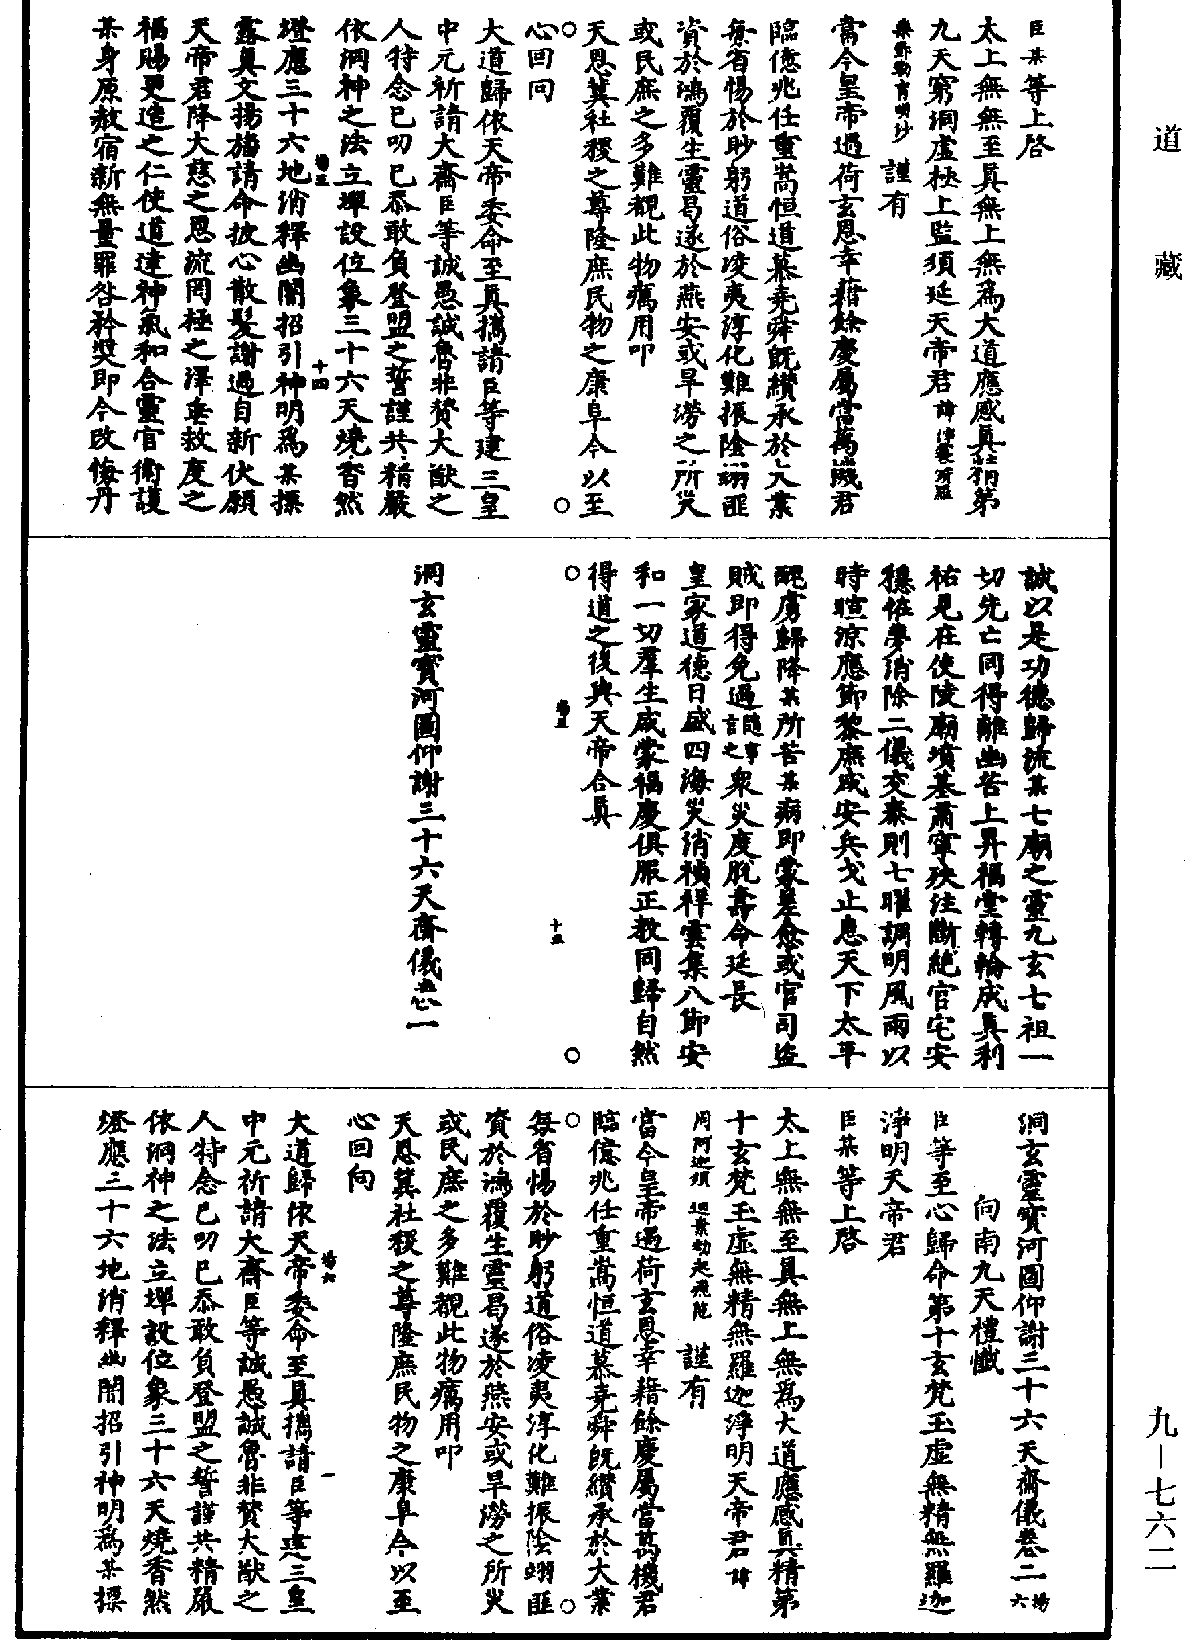 道藏
臣某等上啓
太上無無至眞無上無爲大道應感眞精第
九天窮洞虛極上監須延天帝君諱
謹有
當今皇帝過荷玄恩幸藉餘慶屬當萬機君
臨億兆任重嵩恒道慕堯舜旣纘承於大業
每省惕於眇躬道俗凌夷淳化難振陰翊匪
資於鴻覆生靈曷遂於燕安或旱澇之所災
或民庶之多難覩此物癘用叩
天恩冀社稷之尊隆庶民物之康阜今以至
心回向
大道歸依天帝委命至眞擕請臣等建三皇
中元祈請大齋臣等誠愚誠魯非贊大猷之
人特念已叨已忝敢負登盟之誓謹共精嚴
依洞神之法立墠設位象三十六天燒香然
燈應三十六地消釋幽闇招引神明爲某撰
露眞文揚旛請命披心散髮謝過自新伏願
天帝君降大慈之恩流罔極之澤垂救度之
福賜更造之仁使道達神氣和合靈官衛護
某身原赦宿新無量罪咎矜奬即今改悔丹
誠以是功德歸流某七廟之靈九玄七祖一
切先亡同得離幽苦上昇福堂轉輪成眞利
祐見在使陵廟墳墓肅寧殃注斷絕官宅安
穩怪夢消除二儀交泰則七曜調明風雨以
時暄涼應節黎庶咸安兵戈止息天下太平
醜虜歸降某所苦某病即蒙差愈或官司盜
賊即得免過隨事言之衆災度脫壽命延長
皇家道德日盛四海災消禎祥雲集八節安
和一切羣生咸蒙福慶俱服正教同歸自然
得道之後與天帝合眞
洞玄靈寶河圖仰謝三十六天齋儀卷一
洞玄靈寶河圖仰謝三十六天齋儀卷二 揚六
向南九天禮懺
臣等至心歸命第十玄梵玉虛無精無羅迦
淨明天帝君
臣某等上啓
太上無無至眞無上無爲大道應感眞精第
十玄梵玉虛無精無羅迦淨明天帝君諱
謹有
當今皇帝過荷玄恩幸藉餘慶屬當萬機君
臨億兆任重嵩恒道慕堯舜旣纘承於大業
每省惕於眇躬道俗凌夷淳化難振陰翊匪
資於鴻覆生靈曷遂於燕安或旱澇之所災
或民庶之多難覩此物癘用叩
天恩冀社稷之尊隆庶民物之康阜今以至
心回向
大道歸依天帝委命至眞擕請臣等建三皇
中元祈請大齋臣等誠愚誠魯非贊大猷之
人特念已叨已忝敢負登盟之誓謹共精嚴
依洞神之法立墠設位象三十六天燒香然
燈應三十六地消釋幽闇招引神明爲某撰
九—七六二